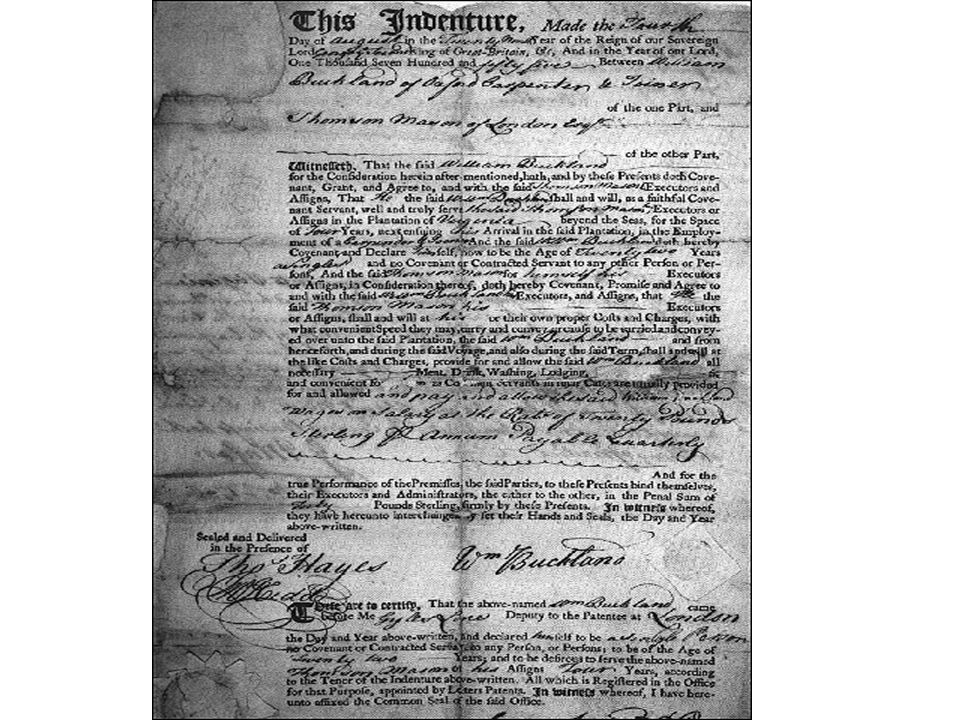 This Indenture, Made the Fourth
Day of August in the Twenty Year of the Reign of our Sovereign
Lord King of Great-Britain, &c, And in the Year of our Lord,
One Thousand Seven Hundred and fifty five Between William
Buckland of Oxford Carpenter & Joiner
of the one Part, and
Thomson Mason of London Esqr.
of the other Part,
Witnesseth, That the said William Buckland
for the Consideration herein after-mentioned, hath, and by these Presents doth Cove-
nant, Grant, and Agree to, and with the said Thomson Mason Executors and
Assigns, That He the said Wm Buckland shall and will, as a faithful Cove-
nant Servant, well and truly serve the said Thomson Mason Executors or
Assigns in the Plantation of Virginia beyond the Seas, for the Space
of Four Years, next ensuing his Arrival in the said Plantation, in the Employ-
ment of a Carpenter & Joiner And the said Wm Buckland doth hereby
Covenant, and Declare himself, now to be the Age of Twenty two Years
a single and no Covenant or Contracted Servant to any other Person or Per-
sons, And the said Thomson Mason for himself his Executors
or Assigns, in Consideration thereof, doth hereby Covenant, Promise and Agree to
and with the said William Buckland Executors, and Assigns, that He the
said Thomson Mason his Executors
or Assigns, shall and will at his or their own proper Costs and Charges, with
what convenient Speed they may, carry and convey or cause to be carried and convey-
ed over unto the said Plantation, the said Wm Buckland and from
henceforth, and during the said Voyage, and also during the said Term, shall and will at
the like Costs and Charges, provide for and allow the said Wm Buckland all
necessary Meat, Drink, Washing, Lodging,
and convenient for as Servants in such Cases are usually provided
for and allowed and pay and allow the said William Buckland
Wages or Salary at the Rate of Twenty Pounds
Sterling Pr Annum Payable Quarterly
And for the
true Performance of the Premisses, the said Parties, to these Presents bind themselves,
their Executors and Administrators, the either to the other, in the Penal Sum of
Forty Pounds Sterling, firmly by these Presents. In witness whereof,
they have hereunto interchangeably set their Hands and Seals, the Day and Year
above-written.
Sealed and Delivered
in the Presence of
Thos Hayes
Wm Buckland
These are to certify, That the above-named Wm Buckland came
before Me Deputy to the Patentee at London
the Day and Year above-written, and declared himself to be a single Person
no Covenant or Contracted Servant to any Person, or Persons; to be of the Age of
Twenty two Years; and to be desirous to serve the above-named
Thomson Mason or his Assigns Four Years, according
to the Tenor of the Indenture above-written. All which is Registered in the Office
for that Purpose, appointed by Letters Patents. In witness whereof, I have here-
unto affixed the Common Seal of the said Office.